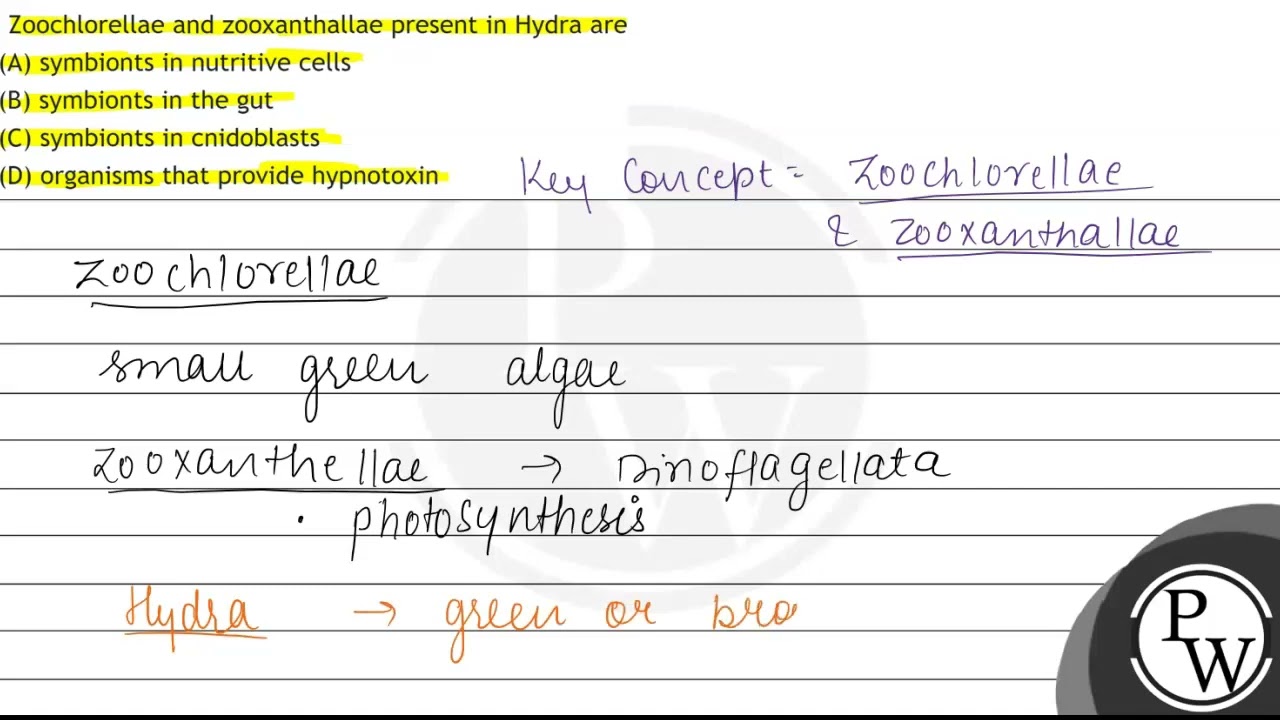 Zoochlorellae and zooxanthallae present in Hydra are
(A) symbionts in nutritive cells
(B) symbionts in the gut
(C) symbionts in cnidoblasts
(D) organisms that provide hypnotoxin
Key Concept = Zoochlorellae
& Zooxanthallae
Zoochlorellae
small green algae
Zooxanthellae → Dinoflagellata
. photosynthesis
Hydra → green or bro
PW
PW